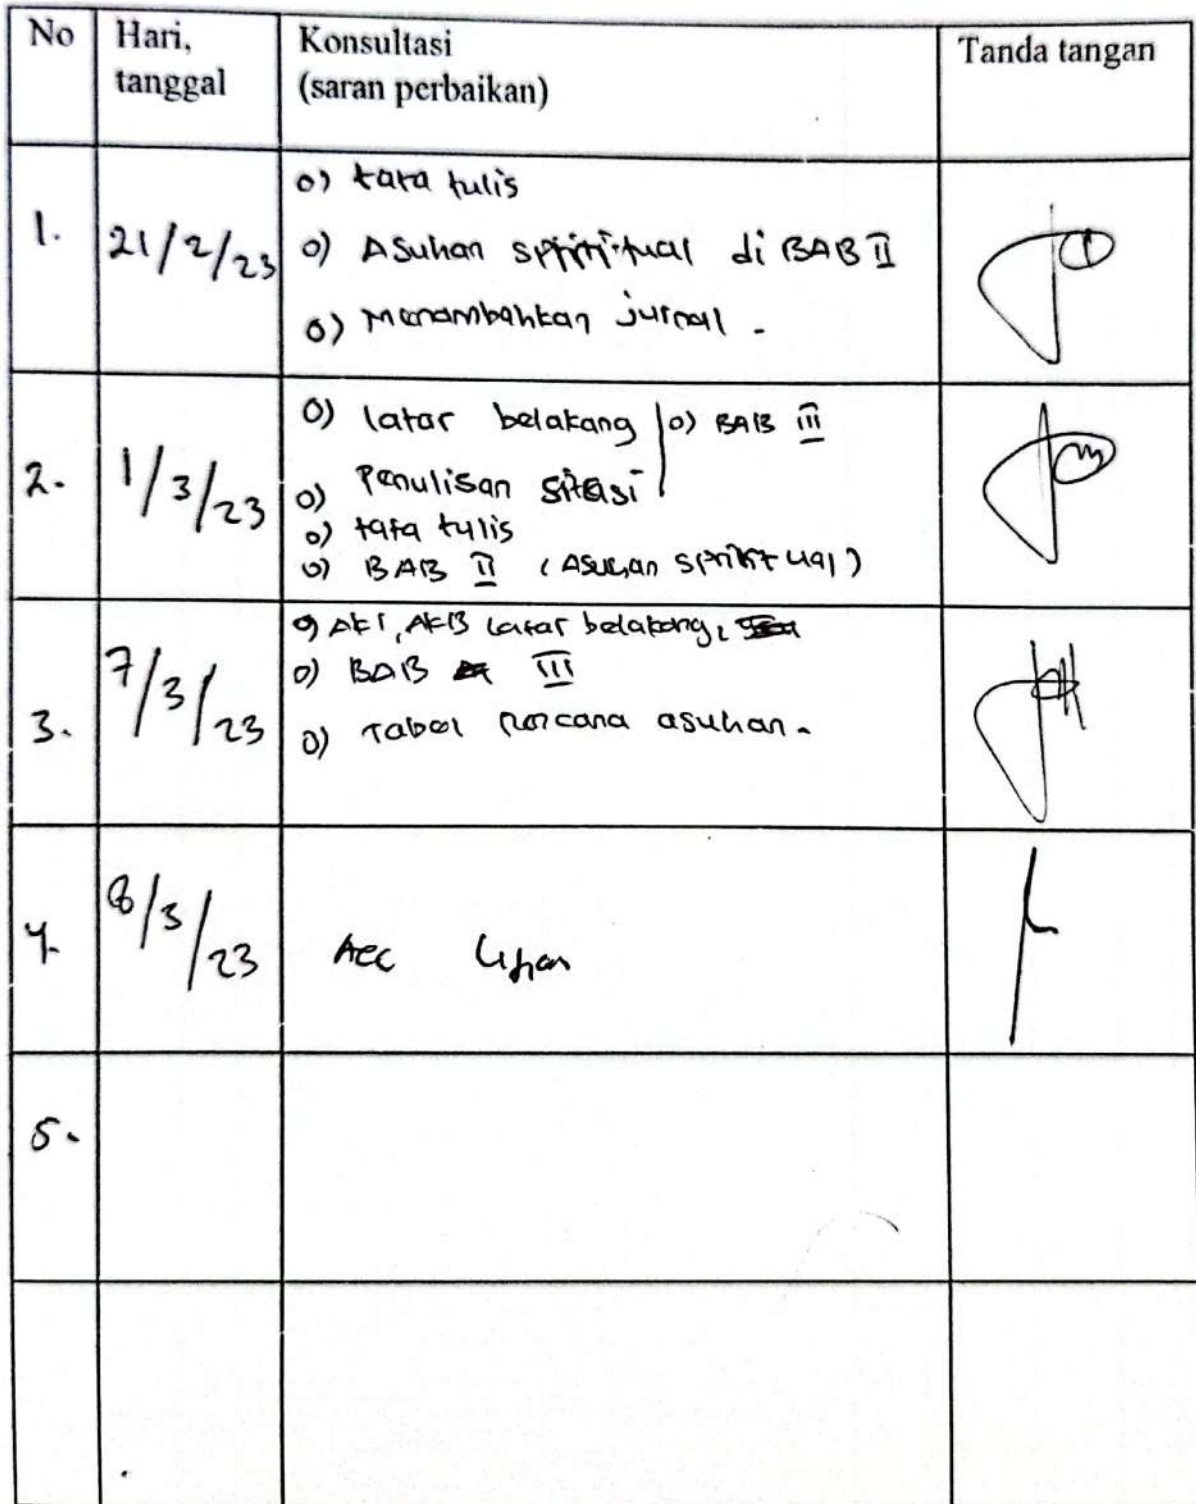 No Hari, tanggal Konsultasi (saran perbaikan) Tanda tangan
1. 21/2/23
o) tata tulis
o) Asuhan spiritual di BAB II
o) Menambahkan jurnal.
2. 1/3/23
o) latar belakang o) BAB III
o) Penulisan sitasi
o) tata tulis
o) BAB II (Asuhan spiritual)
3. 7/3/23
o) AKI, AKB latar belakang,
o) BAB III
o) Tabel rencana asuhan.
4. 8/3/23
Acc Ujian
5.